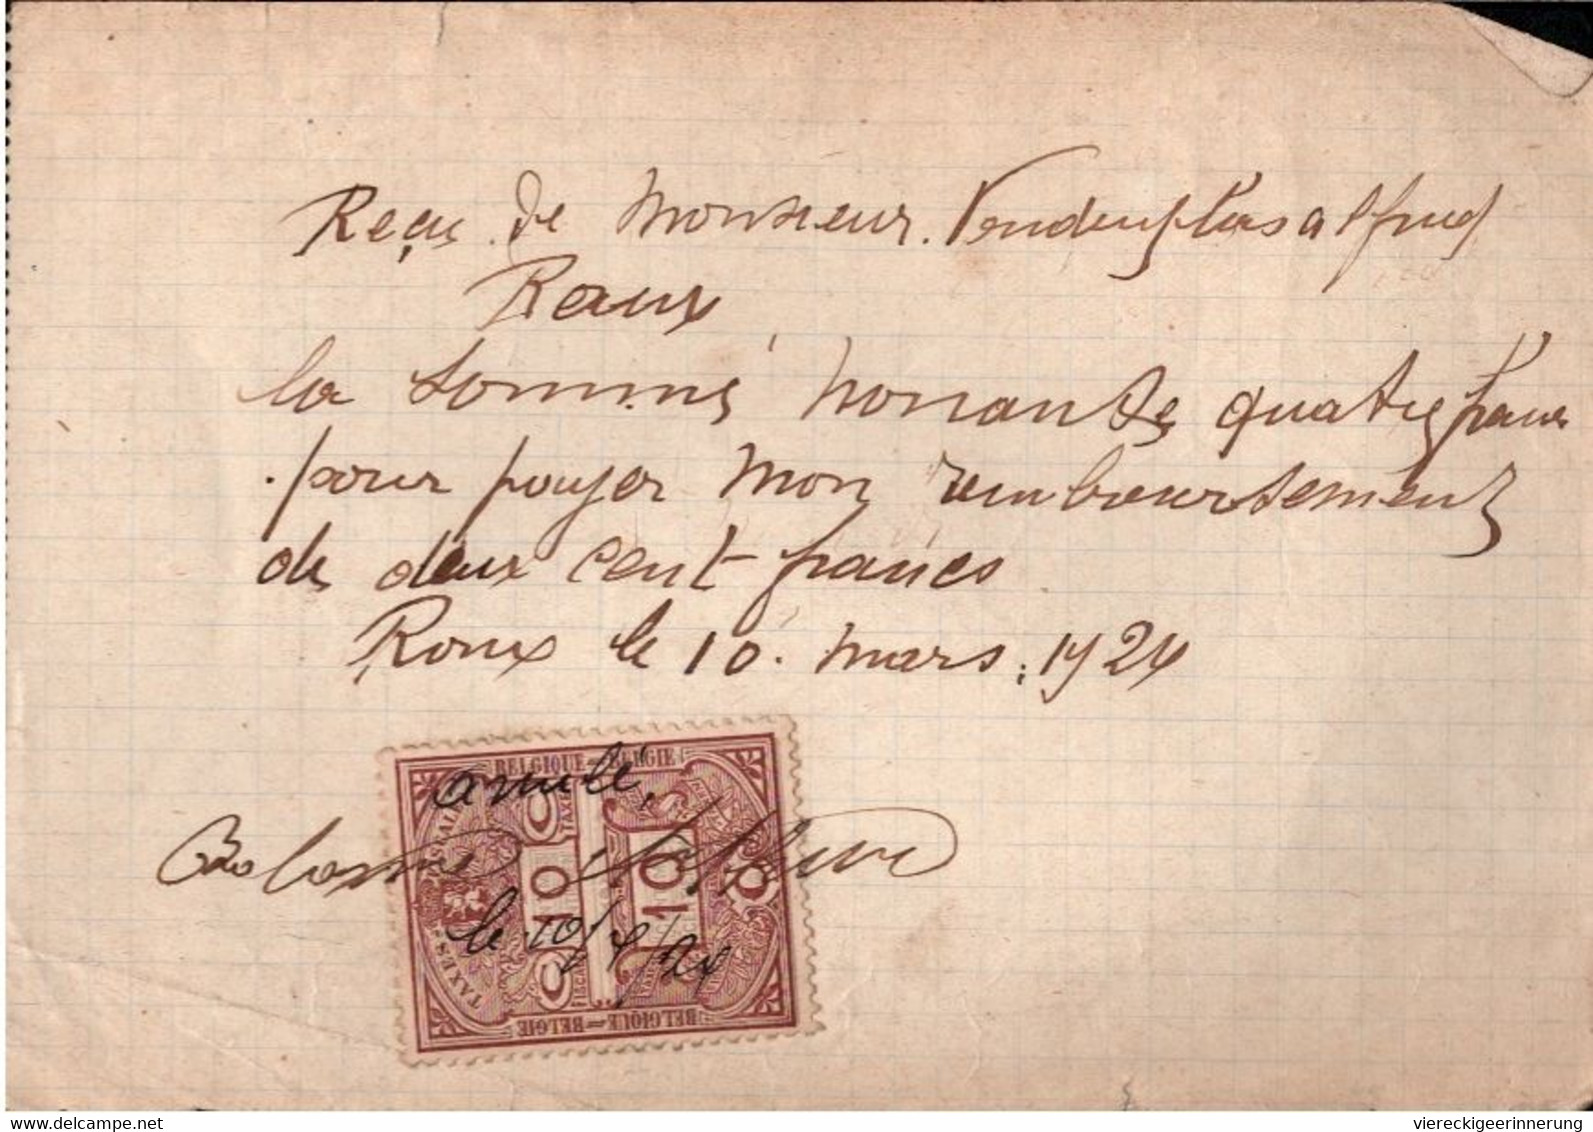 Reçu de Monsieur. Vendenplas alfred
Roux
la somme nonante quatre franc
pour payer mon remboursement
de deux cent francs
Roux le 10. mars. 1924
BELGIQUE - BELGIE
annulé
10
10
le 10/4/24
TAXES
BELGIQUE - BELGIE
delcampe.net
viereckigeerinnerung